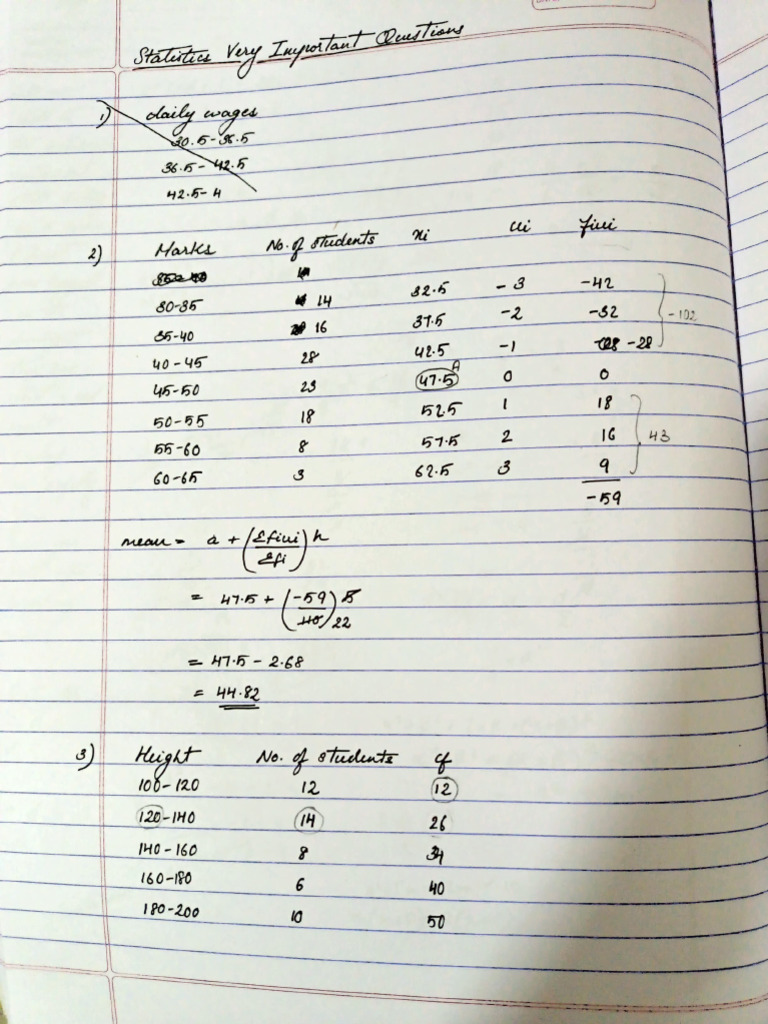 Statistics Very Important Questions
1) daily wages
30.5-36.5
36.5-42.5
42.5-4
2) Marks No. of students xi ui fiui
30-35 14 32.5 -3 -42
35-40 16 37.5 -2 -32 -102
40-45 28 42.5 -1 -28
45-50 23 47.5 A 0 0
50-55 18 52.5 1 18
55-60 8 57.5 2 16 43
60-65 3 62.5 3 9
-59
mean = a + (Σfiui/Σfi) h
= 47.5 + (-59/110) 5 22
= 47.5 - 2.68
= 44.82
3) Height No. of students cf
100-120 12 12
120-140 14 26
140-160 8 34
160-180 6 40
180-200 10 50